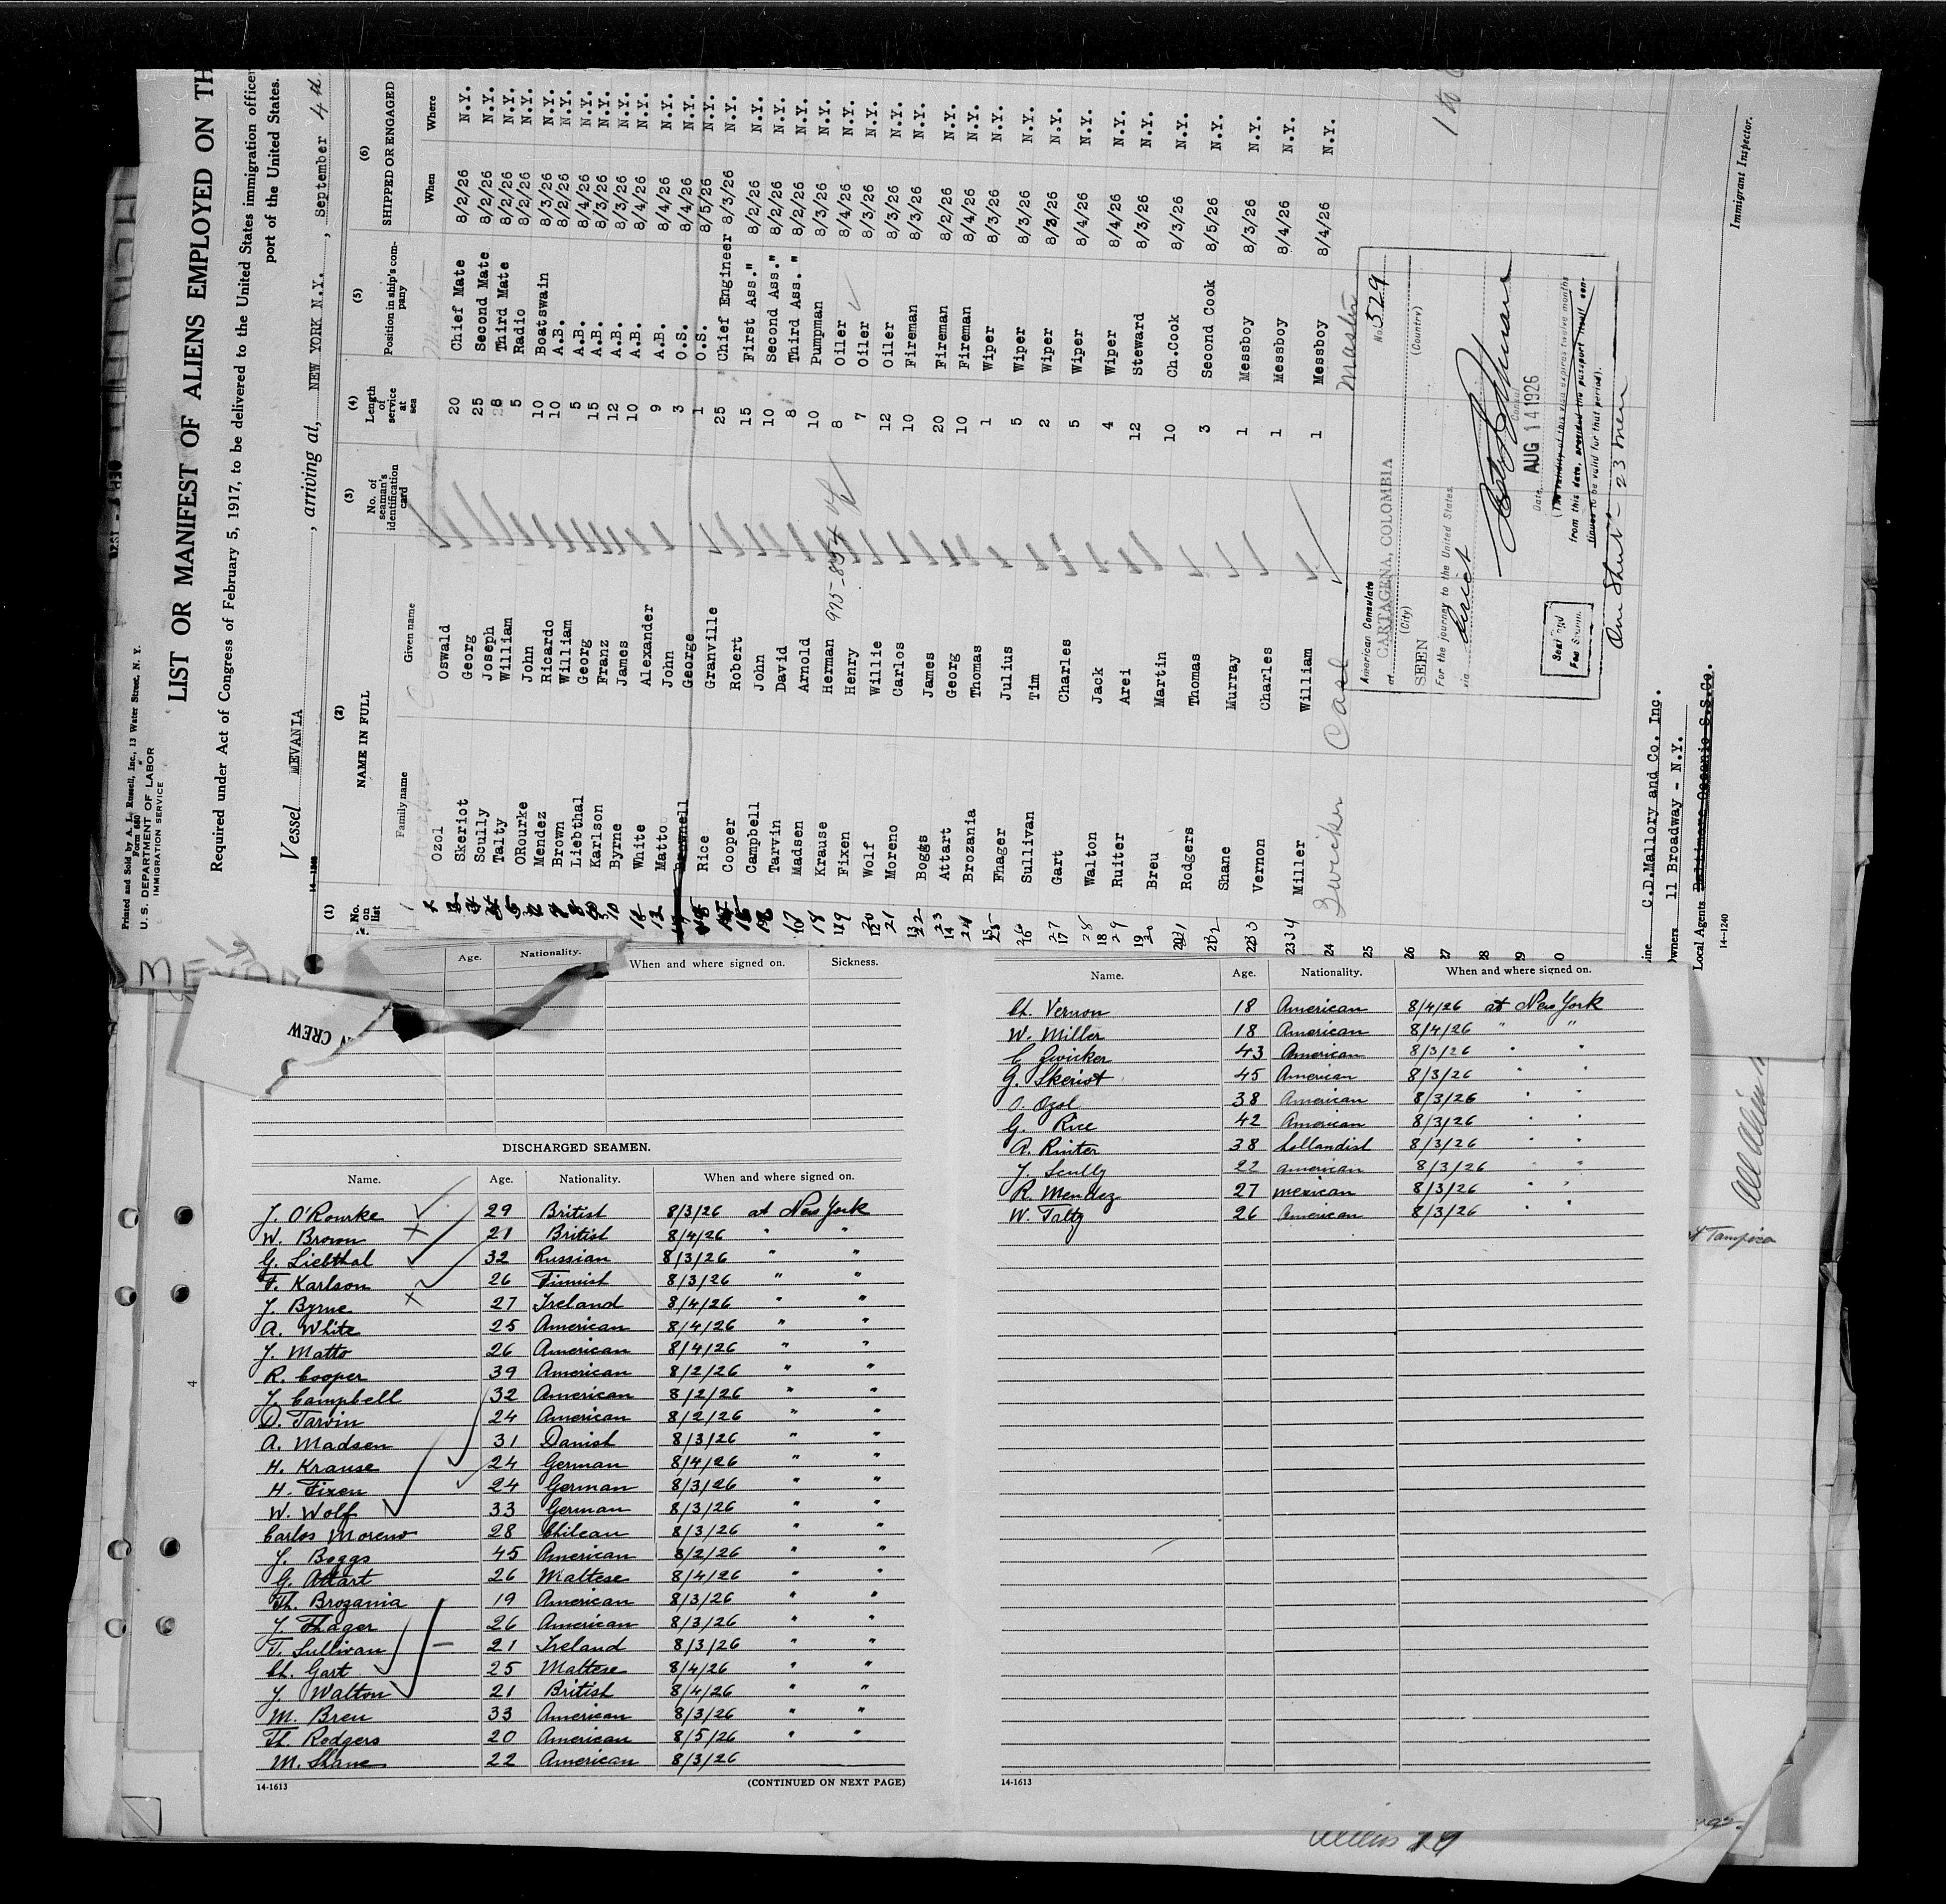 Printed and Sold by A. L. Russell, Inc., 13 Water Street, N. Y.
Form 680
U. S. DEPARTMENT OF LABOR
IMMIGRATION SERVICE
LIST OR MANIFEST OF ALIENS EMPLOYED ON TH
Required under Act of Congress of February 5, 1917, to be delivered to the United States immigration officer
port of the United States.
Vessel MEVANIA, arriving at, NEW YORK N.Y., September 4th
(1) (2) (3) (4) (5) (6)
No. on list NAME IN FULL No. of seaman's identification card Length of service at sea Position in ship's company SHIPPED OR ENGAGED
Family name Given name When Where
Ozol Oswald 20 Chief Mate 8/2/26 N.Y.
Skeriot Georg 25 Second Mate 8/2/26 N.Y.
Scully Joseph 8 Third Mate 8/2/26 N.Y.
Talty William 5 Radio 8/2/26 N.Y.
ORourke John 10 Boatswain 8/3/26 N.Y.
Mendez Ricardo 10 A.B. 8/2/26 N.Y.
Brown William 5 A.B. 8/4/26 N.Y.
Liebthal Georg 15 A.B. 8/3/26 N.Y.
Karlson Franz 12 A.B. 8/3/26 N.Y.
Byrne James 10 A.B. 8/4/26 N.Y.
White Alexander 9 A.B. 8/4/26 N.Y.
Matto John 3 O.S. 8/4/26 N.Y.
Brownell George 1 O.S. 8/5/26 N.Y.
Rice Granville 25 Chief Engineer 8/3/26 N.Y.
Cooper Robert 15 First Ass." 8/2/26 N.Y.
Campbell John 10 Second Ass." 8/2/26 N.Y.
Tarvin David 8 Third Ass. " 8/2/26 N.Y.
Madsen Arnold 10 Pumpman 8/3/26 N.Y.
Krause Herman 8 Oiler 8/4/26 N.Y.
Fixen Henry 7 Oiler 8/3/26 N.Y.
Wolf Willie 12 Oiler 8/3/26 N.Y.
Moreno Carlos 10 Fireman 8/3/26 N.Y.
Boggs James 20 Fireman 8/2/26 N.Y.
Attart Georg 10 Fireman 8/4/26 N.Y.
Brozania Thomas 1 Wiper 8/3/26 N.Y.
Fhager Julius 5 Wiper 8/3/26 N.Y.
Sullivan Tim 2 Wiper 8/3/26 N.Y.
Gart Charles 5 Wiper 8/4/26 N.Y.
Walton Jack 4 Wiper 8/4/26 N.Y.
Ruiter Arei 12 Steward 8/3/26 N.Y.
Breu Martin 10 Ch.Cook 8/3/26 N.Y.
Rodgers Thomas 3 Second Cook 8/5/26 N.Y.
Shane Murray 1 Messboy 8/3/26 N.Y.
Vernon Charles 1 Messboy 8/4/26 N.Y.
Miller William 1 Messboy 8/4/26 N.Y.
Zwicker Carl Master
American Consulate No. 529
at CARTAGENA, COLOMBIA
(City) (Country)
SEEN
For the journey to the United States.
via direct
Consul
Date, AUG 14 1926
(The validity of this visa expires twelve months
from this date, provided the passport itself con-
tinues to be valid for that period).
Seal and
Fee Stamp.
One Sheet - 23 men
Immigrant Inspector.
C.D.Mallory and Co. Inc.
Owners 11 Broadway - N.Y.
Local Agents Baltimore Oceanic S.S.Co.
14-1240
CREW
Age. Nationality. When and where signed on. Sickness.
DISCHARGED SEAMEN.
Name. Age. Nationality. When and where signed on.
J. O'Rourke 29 British 8/3/26 at New York
W. Brown 21 British 8/4/26 " "
G. Liebthal 32 Russian 8/3/26 " "
F. Karlson 26 Finnish 8/3/26 " "
J. Byrne 27 Ireland 8/4/26 " "
A. White 25 American 8/4/26 " "
J. Matto 26 American 8/4/26 " "
R. Cooper 39 American 8/2/26 " "
J. Campbell 32 American 8/2/26 " "
D. Tarvin 24 American 8/2/26 " "
A. Madsen 31 Danish 8/3/26 " "
H. Krause 24 German 8/4/26 " "
H. Fixen 24 German 8/3/26 " "
W. Wolf 33 German 8/3/26 " "
Carlos Moreno 28 Chilean 8/3/26 " "
J. Boggs 45 American 8/2/26 " "
G. Attart 26 Maltese 8/4/26 " "
Th. Brozania 19 American 8/3/26 " "
J. Fhager 26 American 8/3/26 " "
T. Sullivan 21 Ireland 8/3/26 " "
Ch. Gart 25 Maltese 8/4/26 " "
J. Walton 21 British 8/4/26 " "
M. Breu 33 American 8/3/26 " "
Th. Rodgers 20 American 8/5/26 " "
M. Shane 22 American 8/3/26
14-1613 (CONTINUED ON NEXT PAGE)
Name. Age. Nationality. When and where signed on.
Ch. Vernon 18 American 8/4/26 at New York
W. Miller 18 American 8/4/26 " "
C. Zwicker 43 American 8/3/26 " "
G. Skeriot 45 American 8/3/26 " "
O. Ozol 38 American 8/3/26 " "
G. Rice 42 American 8/3/26 " "
A. Riuter 38 Hollandish 8/3/26 " "
J. Scully 22 american 8/3/26 " "
R. Mendez 27 mexican 8/3/26 " "
W. Talty 26 American 8/3/26 " "
14-1613
Tampico
Aliens 29